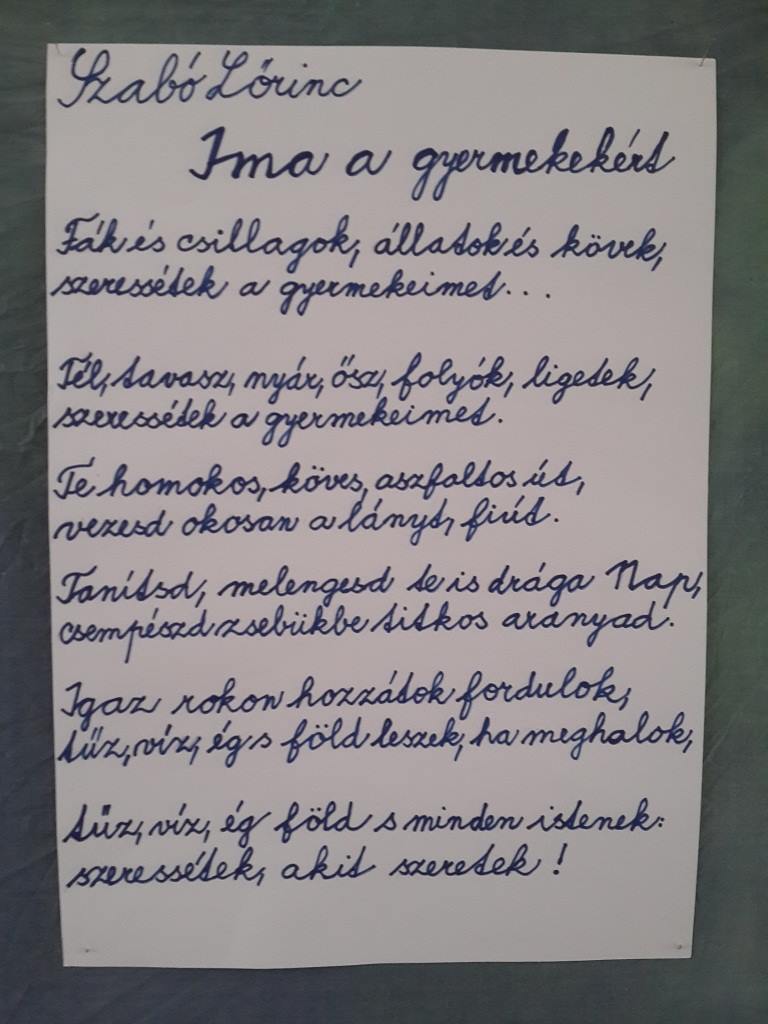 Szabó Lőrinc
Ima a gyermekekért
Fák és csillagok, állatok és kövek,
szeressétek a gyermekeimet...
Tél, tavasz, nyár, ősz, folyók, ligetek,
szeressétek a gyermekeimet.
Te homokos, köves, aszfaltos út,
vezesd okosan a lányt, fiút.
Tanítsd, melengesd te is drága Nap,
csempészd zsebükbe titkos aranyad.
Igaz rokon hozzátok fordulok,
tűz, víz, ég s föld leszek, ha meghalok,
tűz, víz, ég föld s minden istenek:
szeressétek, akit szeretek!